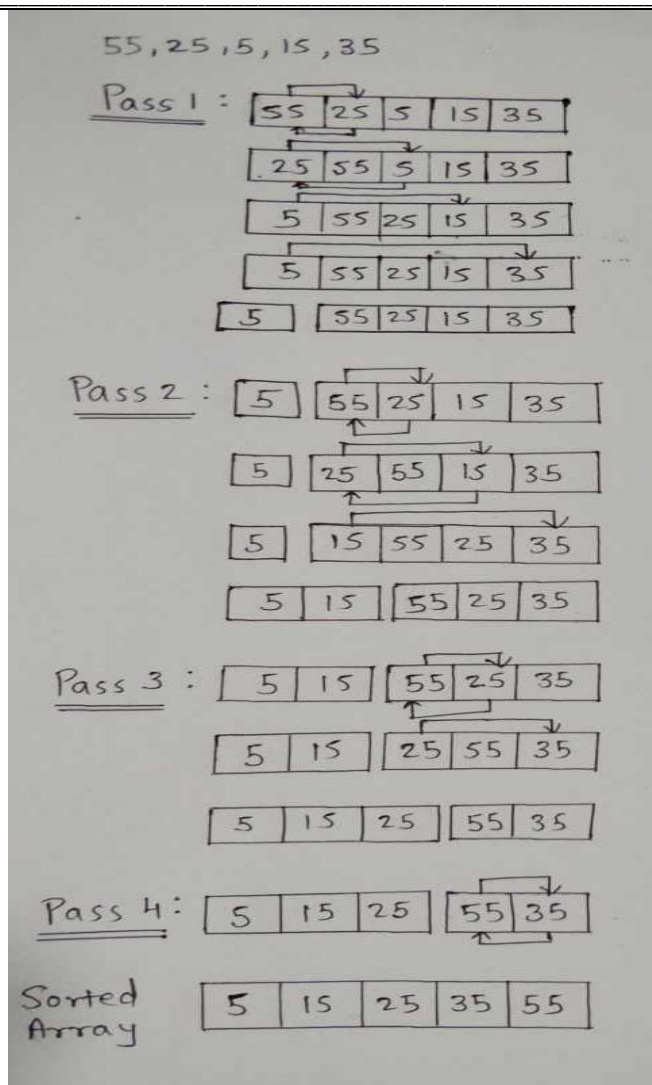 55, 25, 5, 15, 35
Pass 1 : 55 25 5 15 35
25 55 5 15 35
5 55 25 15 35
5 55 25 15 35
5 55 25 15 35
Pass 2 : 5 55 25 15 35
5 25 55 15 35
5 15 55 25 35
5 15 55 25 35
Pass 3 : 5 15 55 25 35
5 15 25 55 35
5 15 25 55 35
Pass 4 : 5 15 25 55 35
Sorted Array 5 15 25 35 55